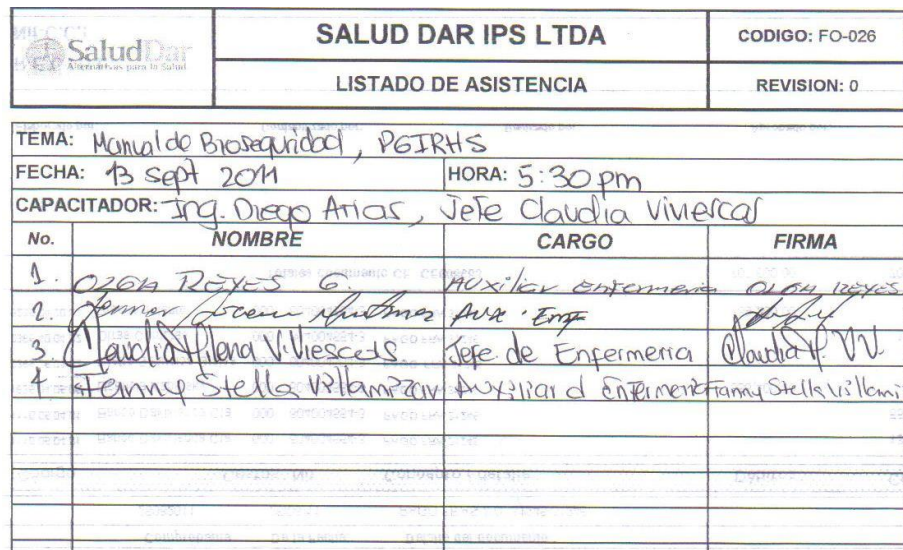 SaludDar
Alternativas para la Salud
SALUD DAR IPS LTDA
CODIGO: FO-026
LISTADO DE ASISTENCIA
REVISION: 0
TEMA: Manual de Bioseguridad, PGIRHS
FECHA: 13 Sept 2011 HORA: 5:30 pm
CAPACITADOR: Ing. Diego Arias, Jefe Claudia Viviescas
No. NOMBRE CARGO FIRMA
1. OLGA REYES G. Auxiliar enfermeria OLGA REYES
2. Aux. Enf
3. Claudia Milena Viviescas Jefe de Enfermeria Claudia M. VV.
4. Fanny Stella Villamizar Auxiliar d enfermeria Fanny Stella Villami